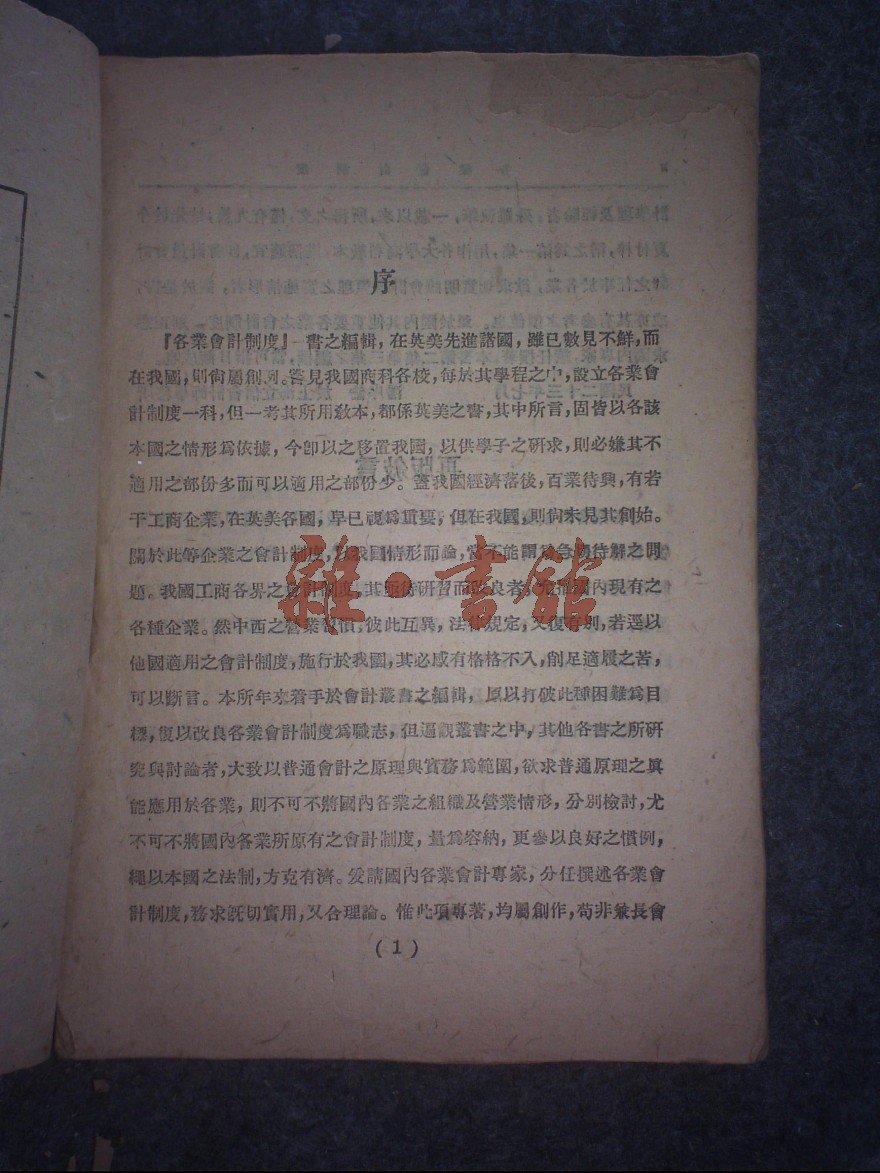 序
『各業會計制度』一書之編輯，在英美先進諸國，雖已數見不鮮，而
在我國，則尙屬創例。嘗見我國商科各校，每於其學程之中，設立各業會
計制度一科，但一考其所用敎本，都係英美之書，其中所言，固皆以各該
本國之情形爲依據，今卽以之移置我國，以供學子之硏求，則必嫌其不
適用之部份多而可以適用之部份少。蓋我國經濟落後，百業待興，有若
干工商企業，在英美各國，早已視爲重要，但在我國，則尙未見其創始。
關於此等企業之會計制度，以我國情形而論，當不能謂爲急切待解之問
題。我國工商各界之會計制度，其亟待硏習而改良者，尤在國內現有之
各種企業。然中西之營業習慣，彼此互異，法律規定，又復有別，若逕以
他國適用之會計制度，施行於我國，其必感有格格不入，削足適履之苦，
可以斷言。本所年來着手於會計叢書之編輯，原以打破此種困難爲目
標，復以改良各業會計制度爲職志，但遍觀叢書之中，其他各書之所硏
究與討論者，大致以普通會計之原理與實務爲範圍，欲求普通原理之眞
能應用於各業，則不可不將國內各業之組織及營業情形，分別檢討，尤
不可不將國內各業所原有之會計制度，量爲容納，更參以良好之慣例，
繩以本國之法制，方克有濟。爰請國內各業會計專家，分任撰述各業會
計制度，務求旣切實用，又合理論。惟此項專著，均屬創作，苟非兼長會
(1)
雜·書館